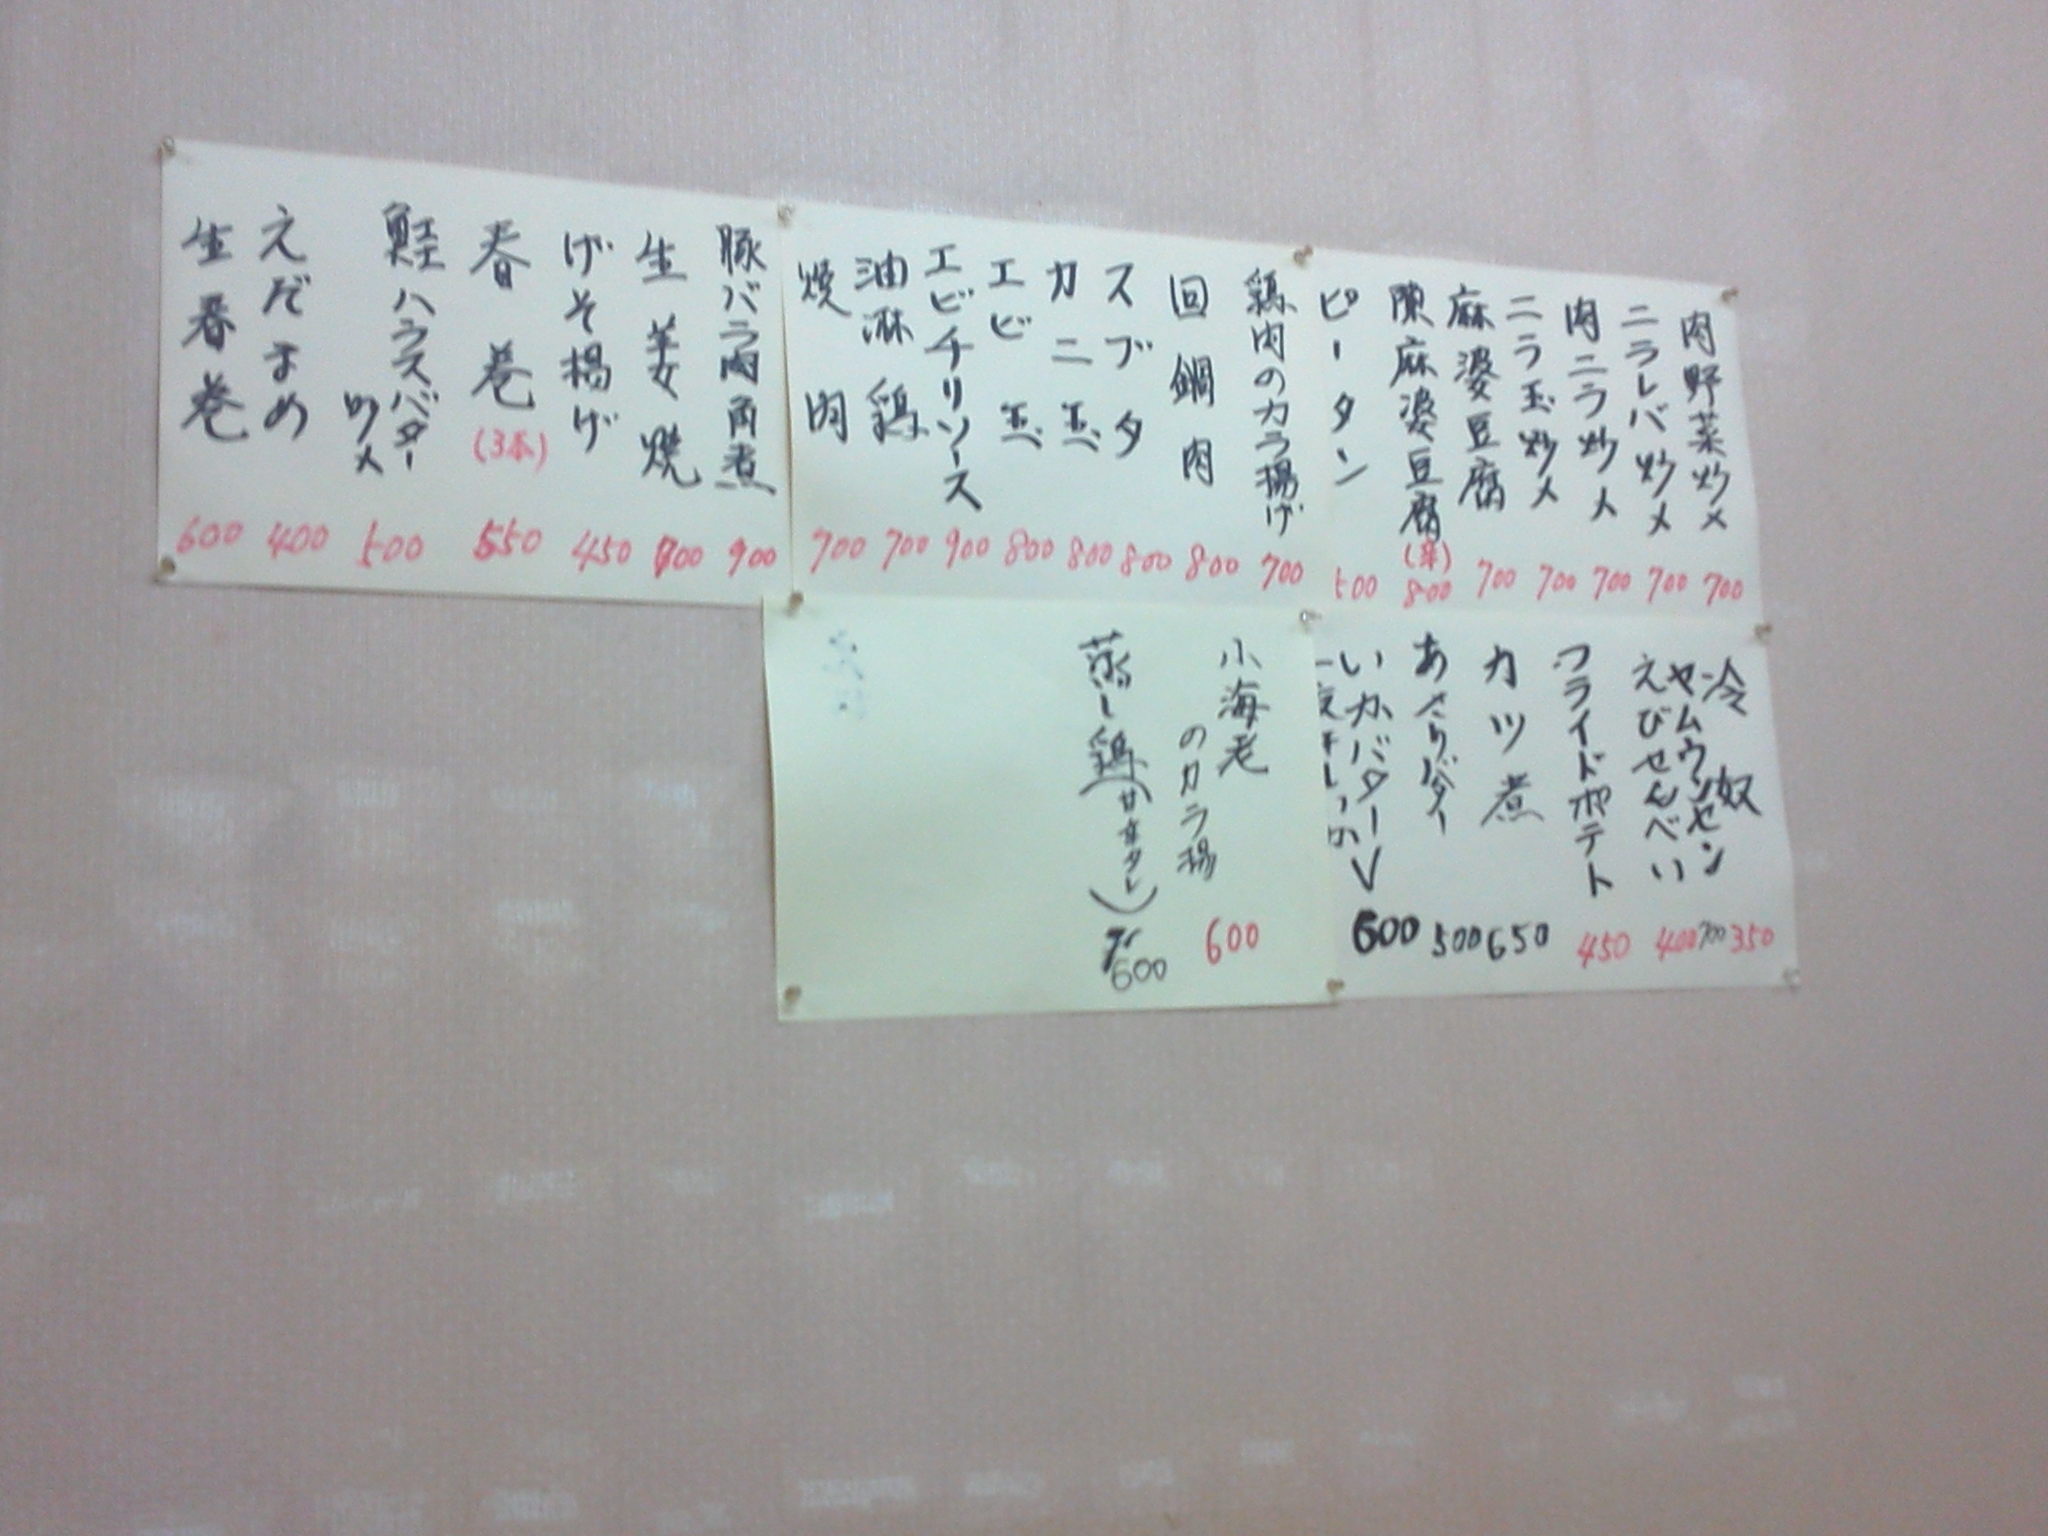 肉野菜炒メ 700
ニラレバ炒メ 700
肉ニラ炒メ 700
ニラ玉炒メ 700
麻婆豆腐 700
陳麻婆豆腐 (辛) 800
ピータン 500
鶏肉のカラ揚げ 700
回鍋肉 800
スブタ 800
カニ玉 800
エビ玉 800
エビチリソース 900
油淋鶏 700
焼肉 700
豚バラ肉角煮 900
生姜焼 700
げそ揚げ 450
春巻 (3本) 550
鮭ハラスバター
炒メ 500
えだまめ 400
生春巻 600
冷奴 350
ヤムウンセン 700
えびせんべい 400
フライドポテト 450
カツ煮 650
あさりバター 500
いかバター 600
小海老
のカラ揚 600
蒸し鶏(甘辛タレ) 600